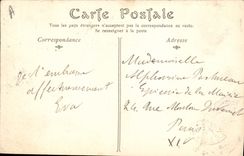 A
Carte Postale
Tous les pays étrangers n'acceptent pas la correspondance au recto.
Se renseigner à la poste
Correspondance
Adresse
Mademoiselle
Alphonsine
Je t'embrasse
Epicerie de la
affectueusement
24 Rue
Eva
Paris
XI